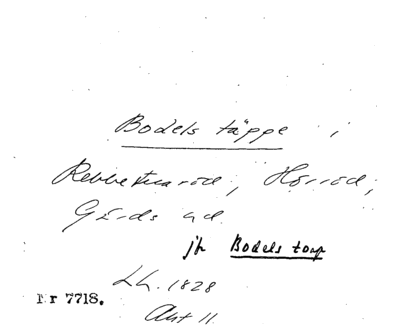 Bodels täppe i
Rebbetuaröd, Hörröd,
Gärds hd.
jfr Bodels torp
Lh. 1828
Nr 7718.
Akt 11